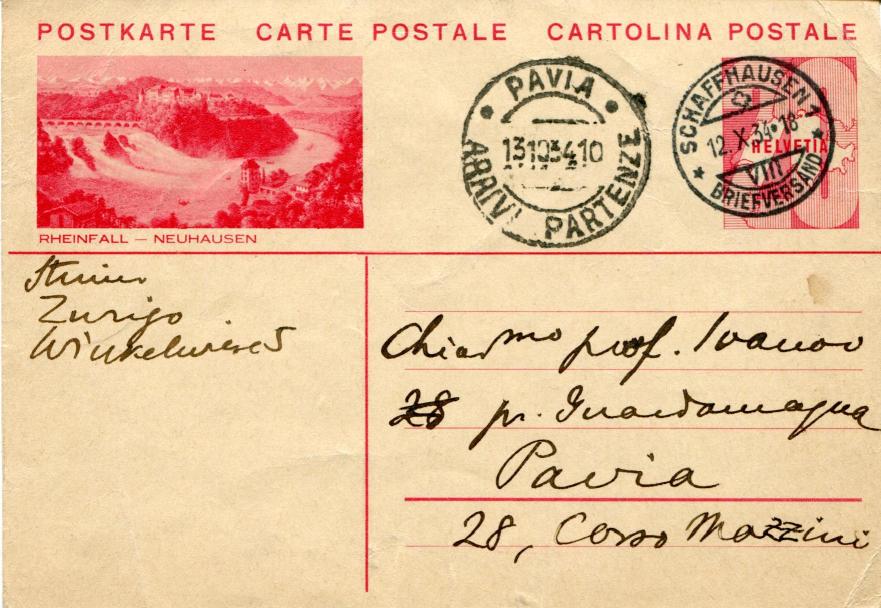 POSTKARTE CARTE POSTALE CARTOLINA POSTALE
RHEINFALL — NEUHAUSEN
PAVIA
13 10 34 10
ARRIVI PARTENZE
SCHAFFHAUSEN 1
12. X. 34·18
HELVETIA
VIII
BRIEFVERSAND
Zurigo
Chiarmo prof. Ivanov
28 pr. Guardamagna
Pavia
28, Corso Mazzini